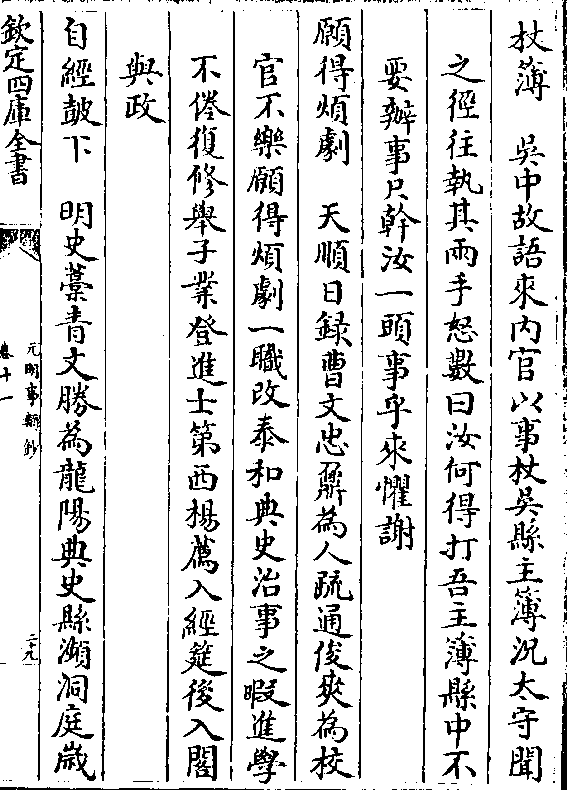 杖簿　吳中故語來内官以事杖吳縣主簿况太守聞
之徑往執其兩手怒數曰汝何得打吾主簿縣中不
要辦事只幹汝一頭事乎來懼謝
願得煩劇　天順日録曹文忠鼐為人疏通俊爽為校
官不樂願得煩劇一職改泰和典史治事之暇進學
不倦復修舉子業登進士第西楊薦入經筵後入閣
與政
自經皷下　明史藁青文勝為龍陽典史縣瀕洞庭歲
欽定四庫全書
元明事類鈔
卷十一
二十九